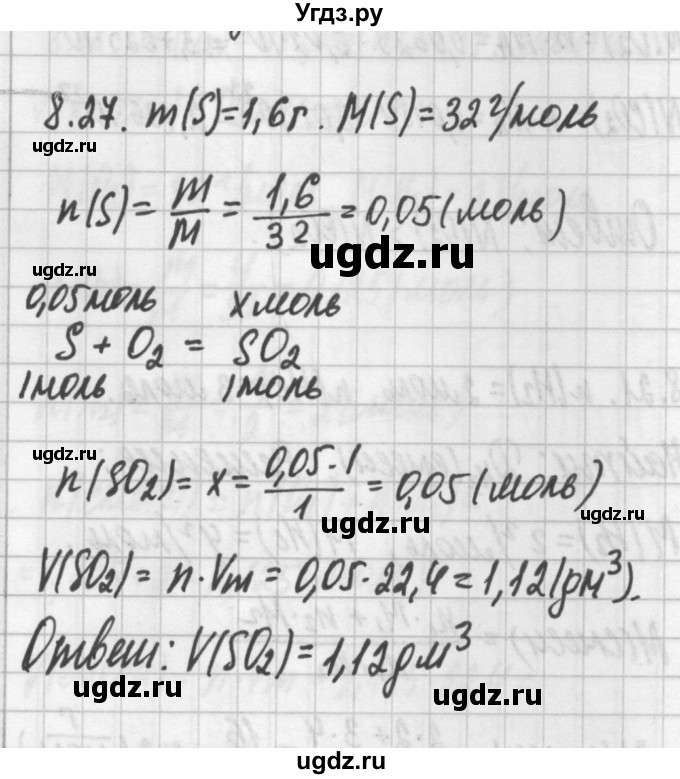 Угдз.ру
8.27. m(S)=1,6г. M(S)=32 г/моль
ugdz.ru
n(S)= m/M = 1,6/32 = 0,05 (моль)
ugdz.ru
ugdz.ru
0,05моль xмоль
S + O₂ = SO₂
ugdz.ru
1моль 1моль
n(SO₂)= x = 0,05·1/1 = 0,05 (моль)
ugdz.ru
ugdz.ru
ugdz.ru
V(SO₂)= n·Vm = 0,05·22,4=1,12(дм³).
Ответ: V(SO₂)=1,12дм³
ugdz.ru
ugdz.ru
ugdz.ru
ugdz.ru